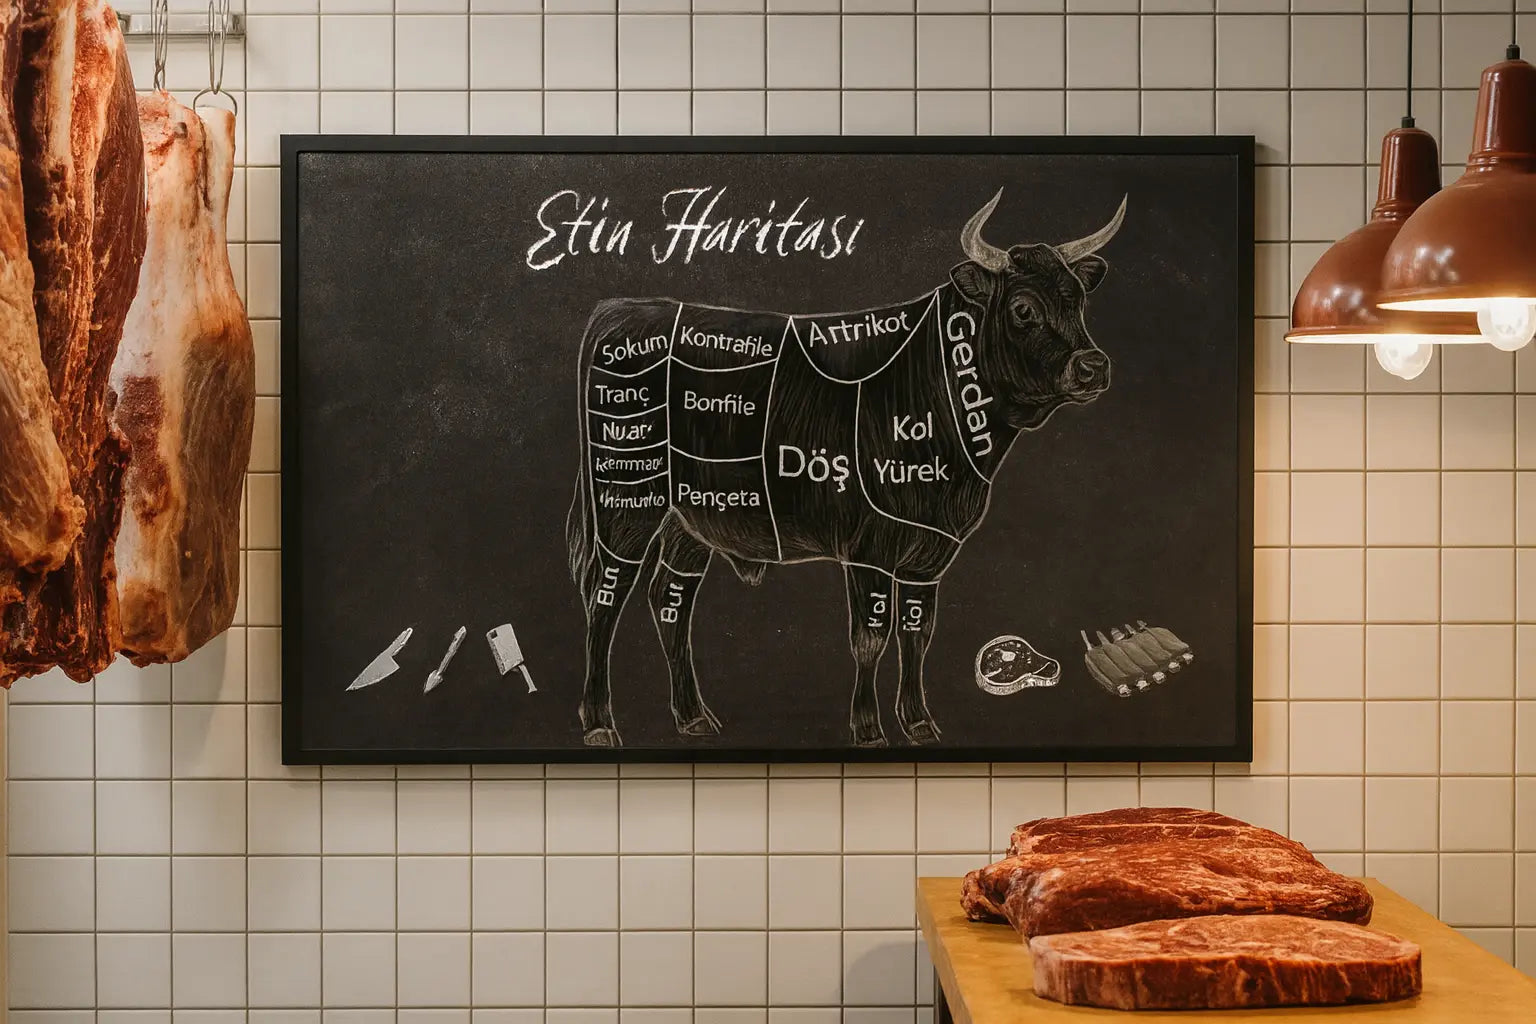 Etin Haritası
Sokum
Kontrafile
Antrikot
Gerdan
Tranç
Bonfile
Nuar
Kol
Yürek
Döş
Pençeta
But
But
Kol
Kol